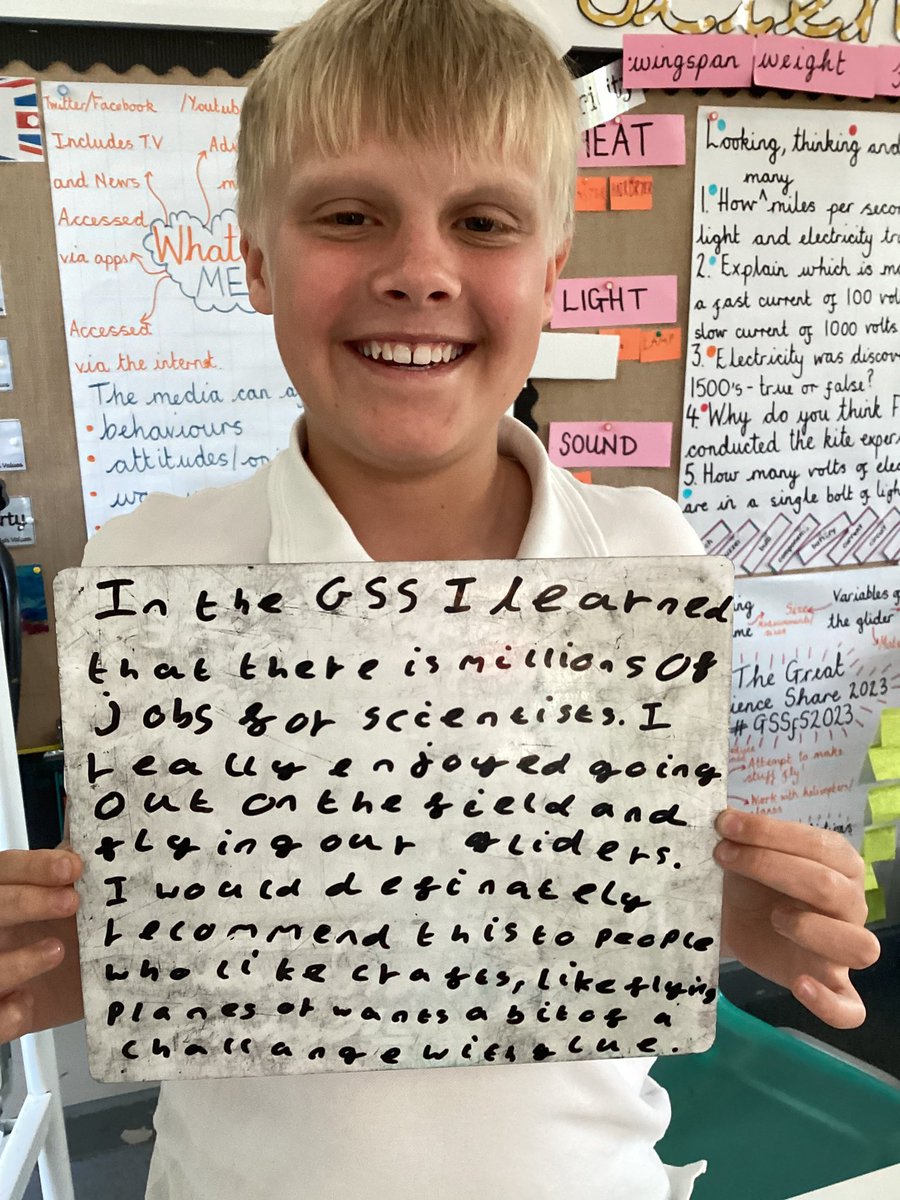 wingspan weight
Twitter/Facebook /Youtub
Includes TV
and News
Accessed
via apps
What
ME
Accessed
via the internet.
The media can a
behaviours
attitudes/
HEAT
LIGHT
LAMP
SOUND
Looking, thinking and
many
1. How ^ miles per secon
light and electricity tr
2. Explain which is m
a fast current of 100 vol
slow current of 1000 volts
3. Electricity was discov
1500's - true or false?
4. Why do you think F
conducted the kite exper
5. How many volts of elec
are in a single bolt of ligh
Variables
the glider
The Great
ience Share 2023
# GSSfS2023
Attempt to make
stuff fly
Work with helicopters/
In the GSS I learned
that there is millions of
jobs for scientists. I
really enjoyed going
out on the field and
flying our gliders.
I would definately
recommend this to people
who like crafts, like flying
planes or wants a bit of a
challange with glue.